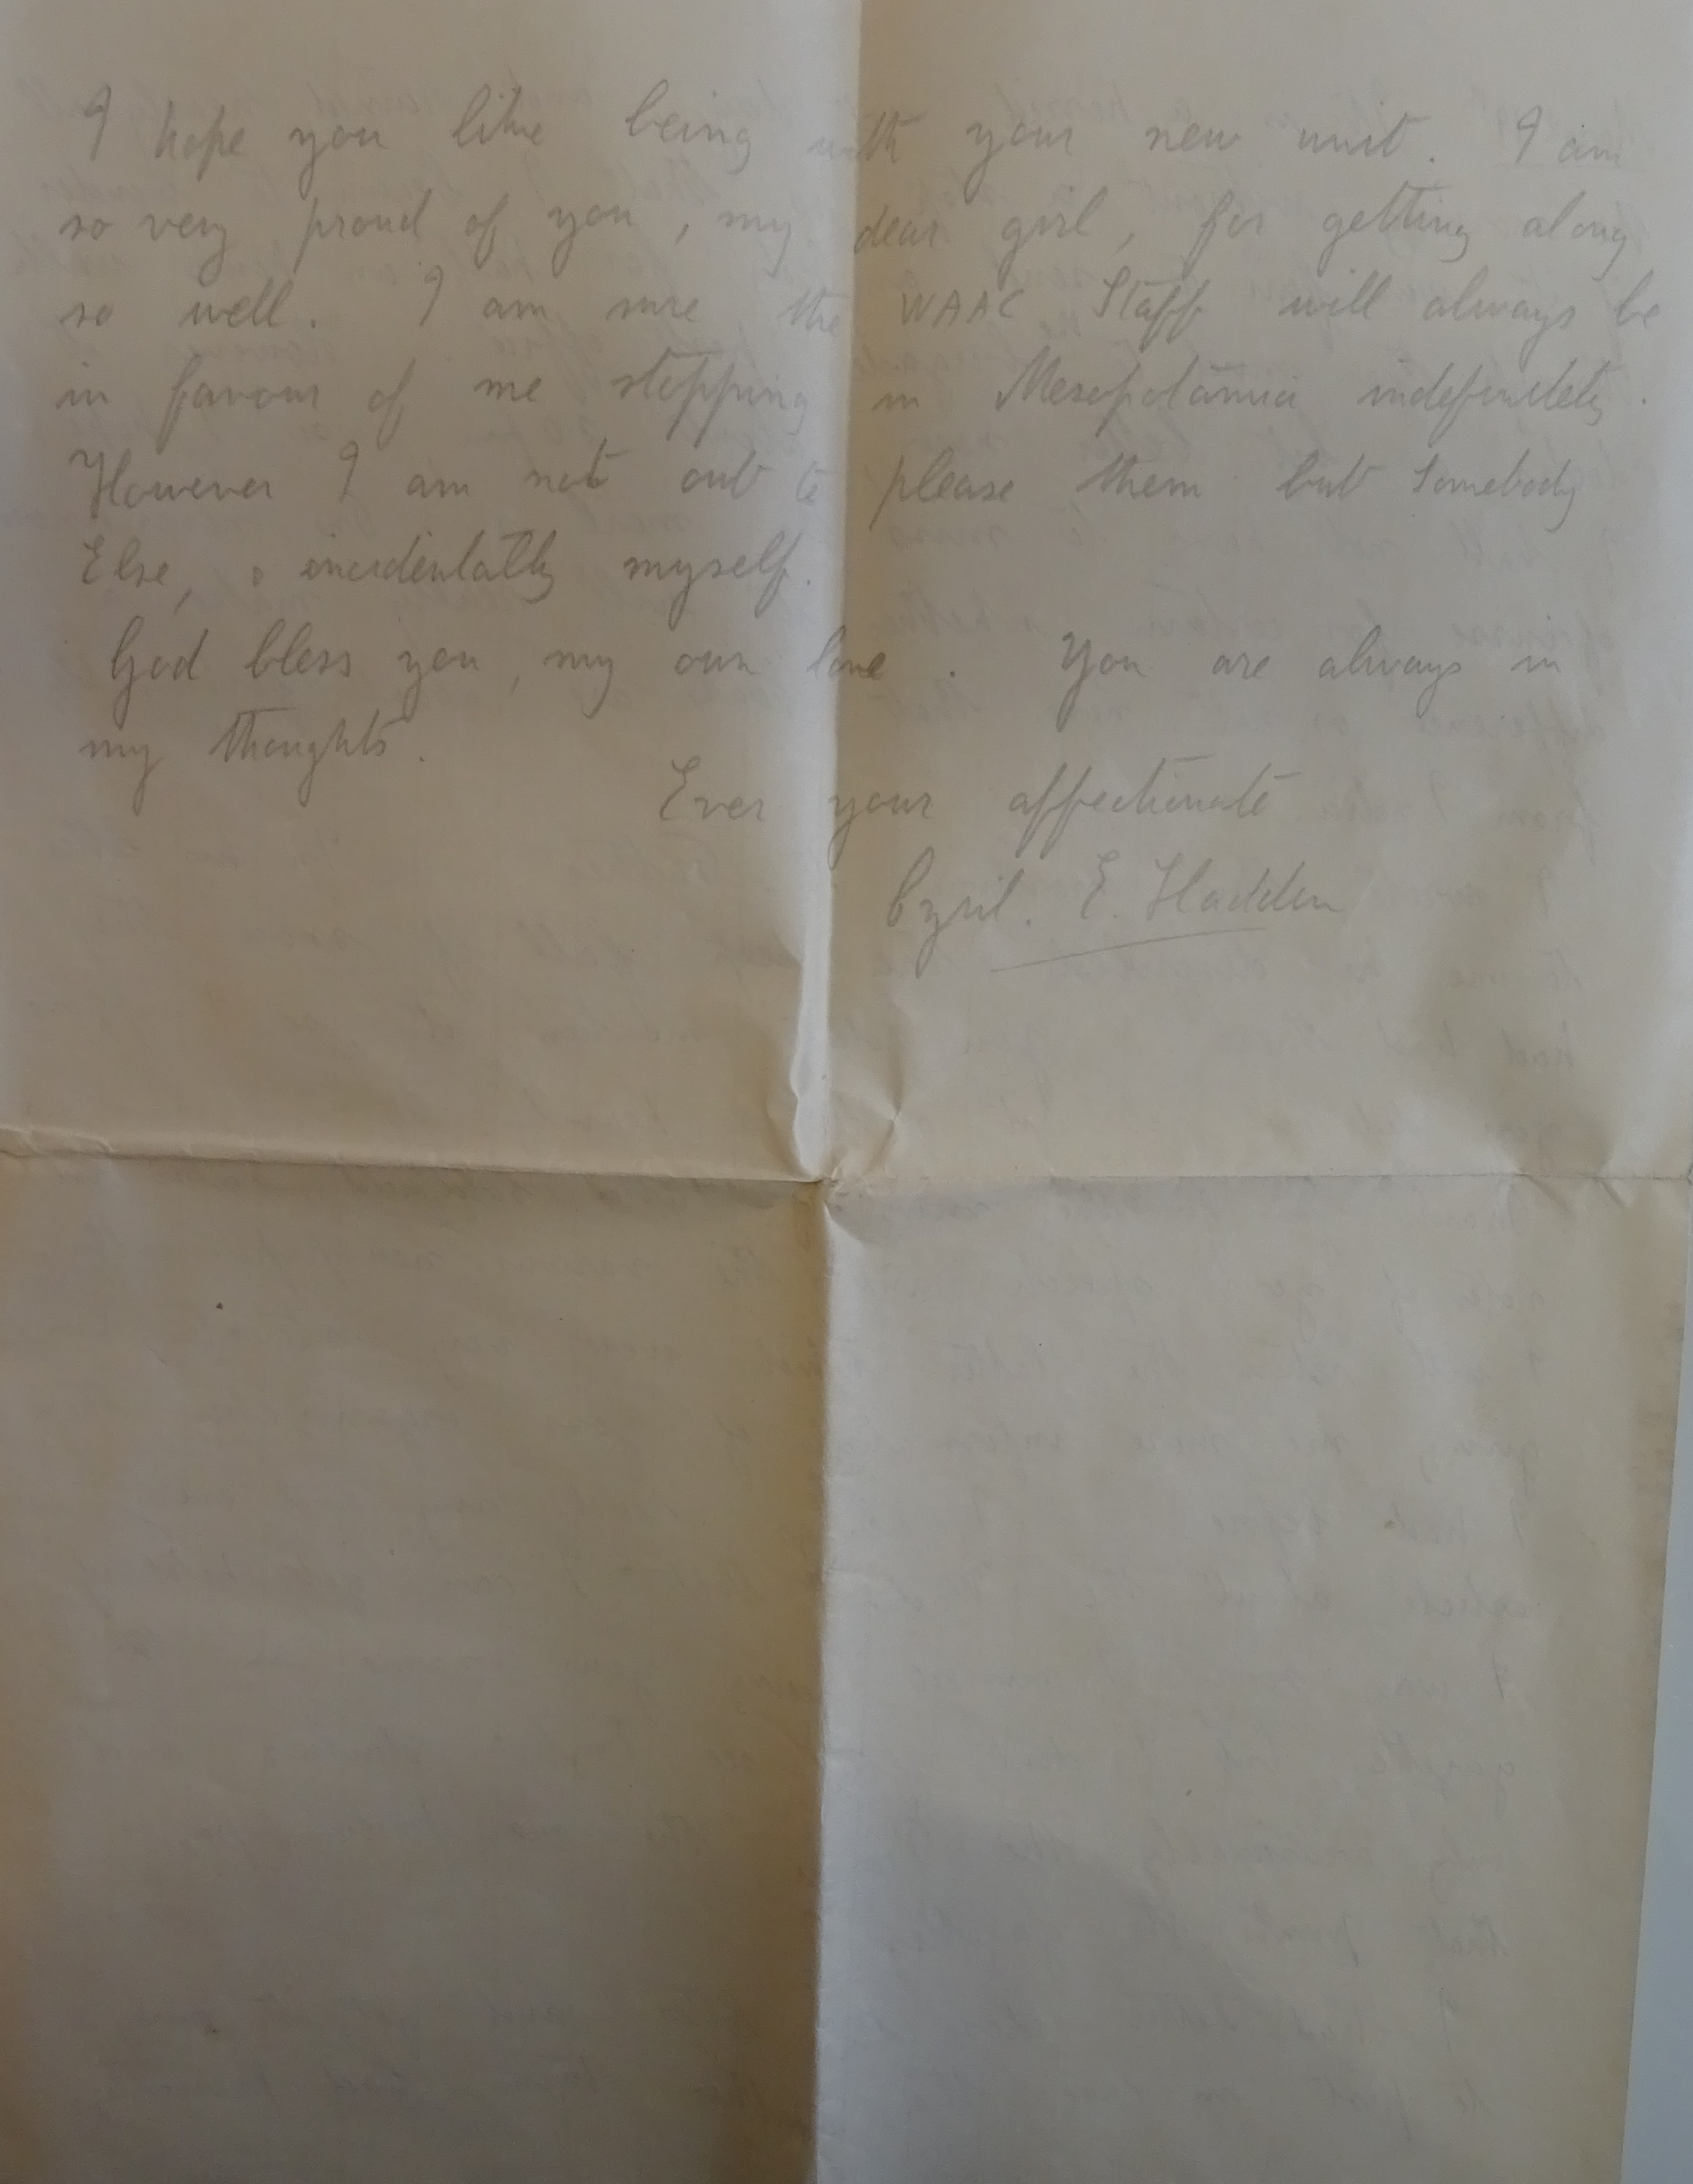 I hope you like being with your new unit. I am
so very proud of you, my dear girl, for getting along
so well. I am sure the WAAC Staff will always be
in favour of me stopping in Mesopotamia indefinitely.
However I am not out to please them but Somebody
Else, & incidentally myself.
God bless you, my own love. You are always in
my thoughts.
Ever your affectionate
Cyril. E. Hadden